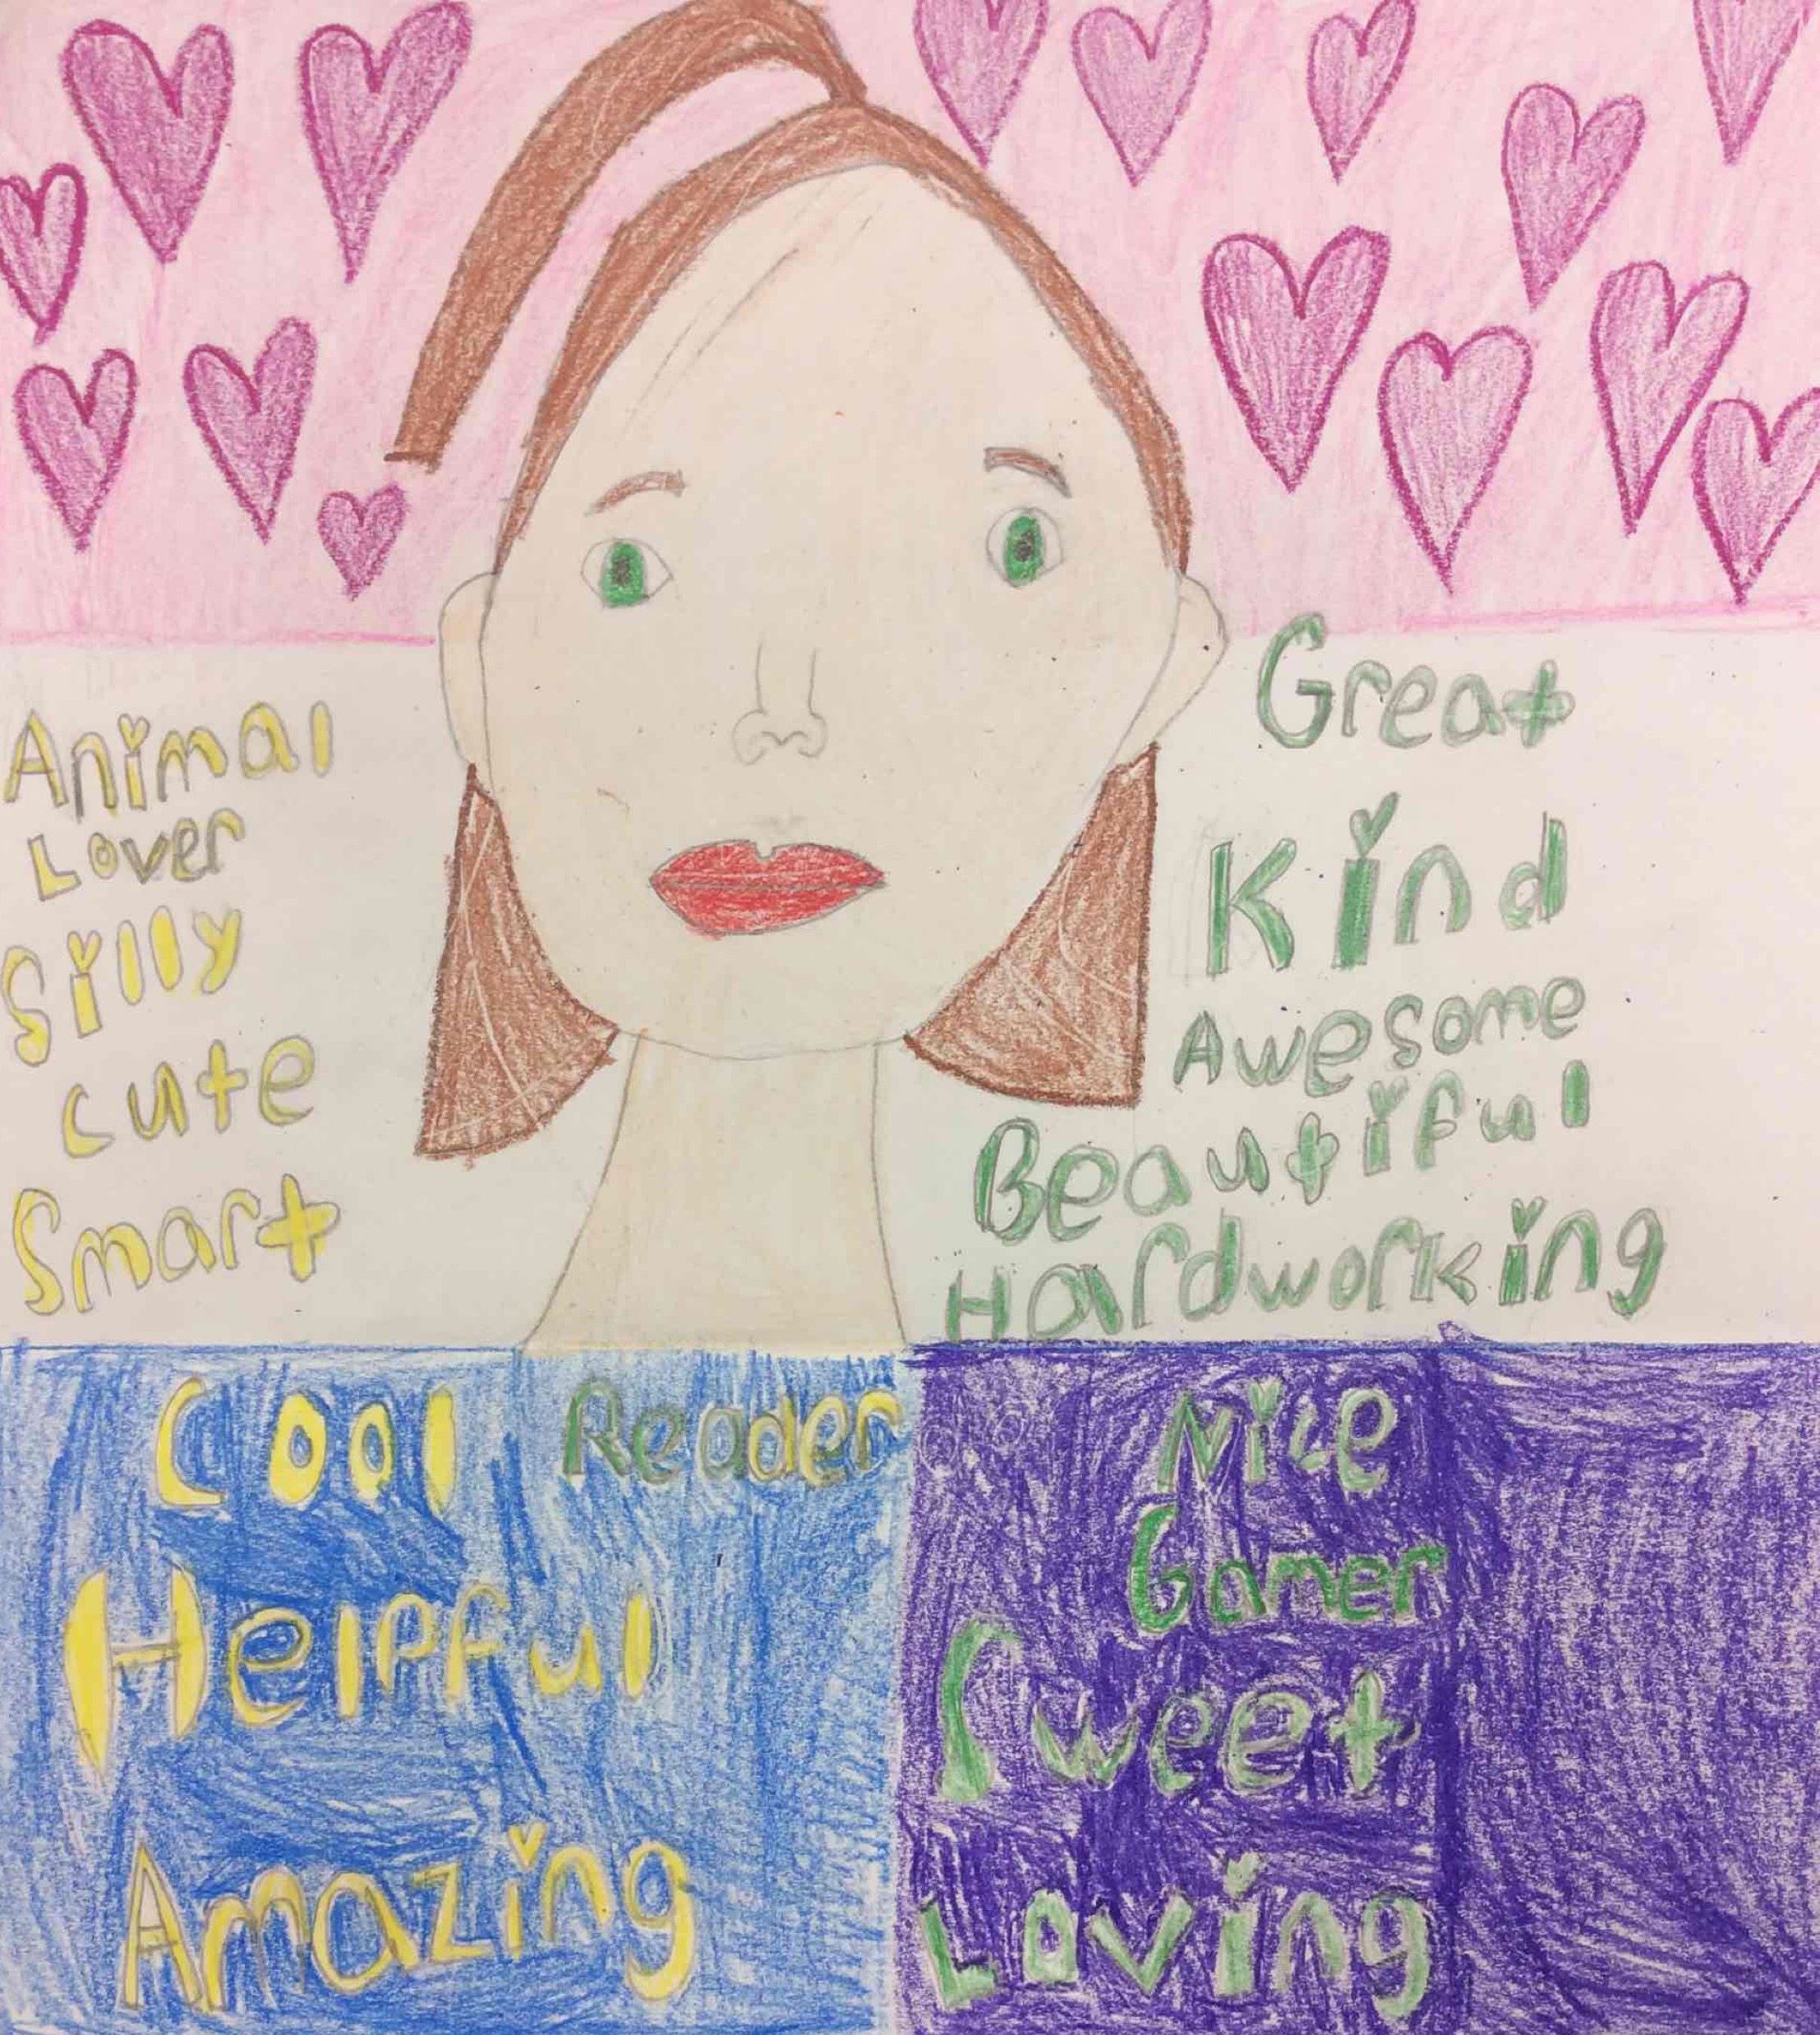 Animal
Lover
Silly
cute
Smart
Great
Kind
Awesome
Beautiful
Hardworking
Cool Reader
Helpful
Amazing
Nice
Gamer
Sweet
Loving